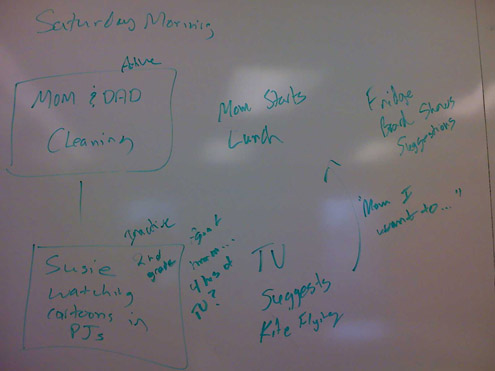 Saturday Morning
Active
MOM & DAD
Cleaning
Mom Starts
Lunch
Fridge
Board Shows
Suggestions
"Mom I
want to..."
Inactive
2nd
grader
Susie
watching
cartoons in
PJs
4 hrs of
TV?
TV
Suggests
Kite Flying